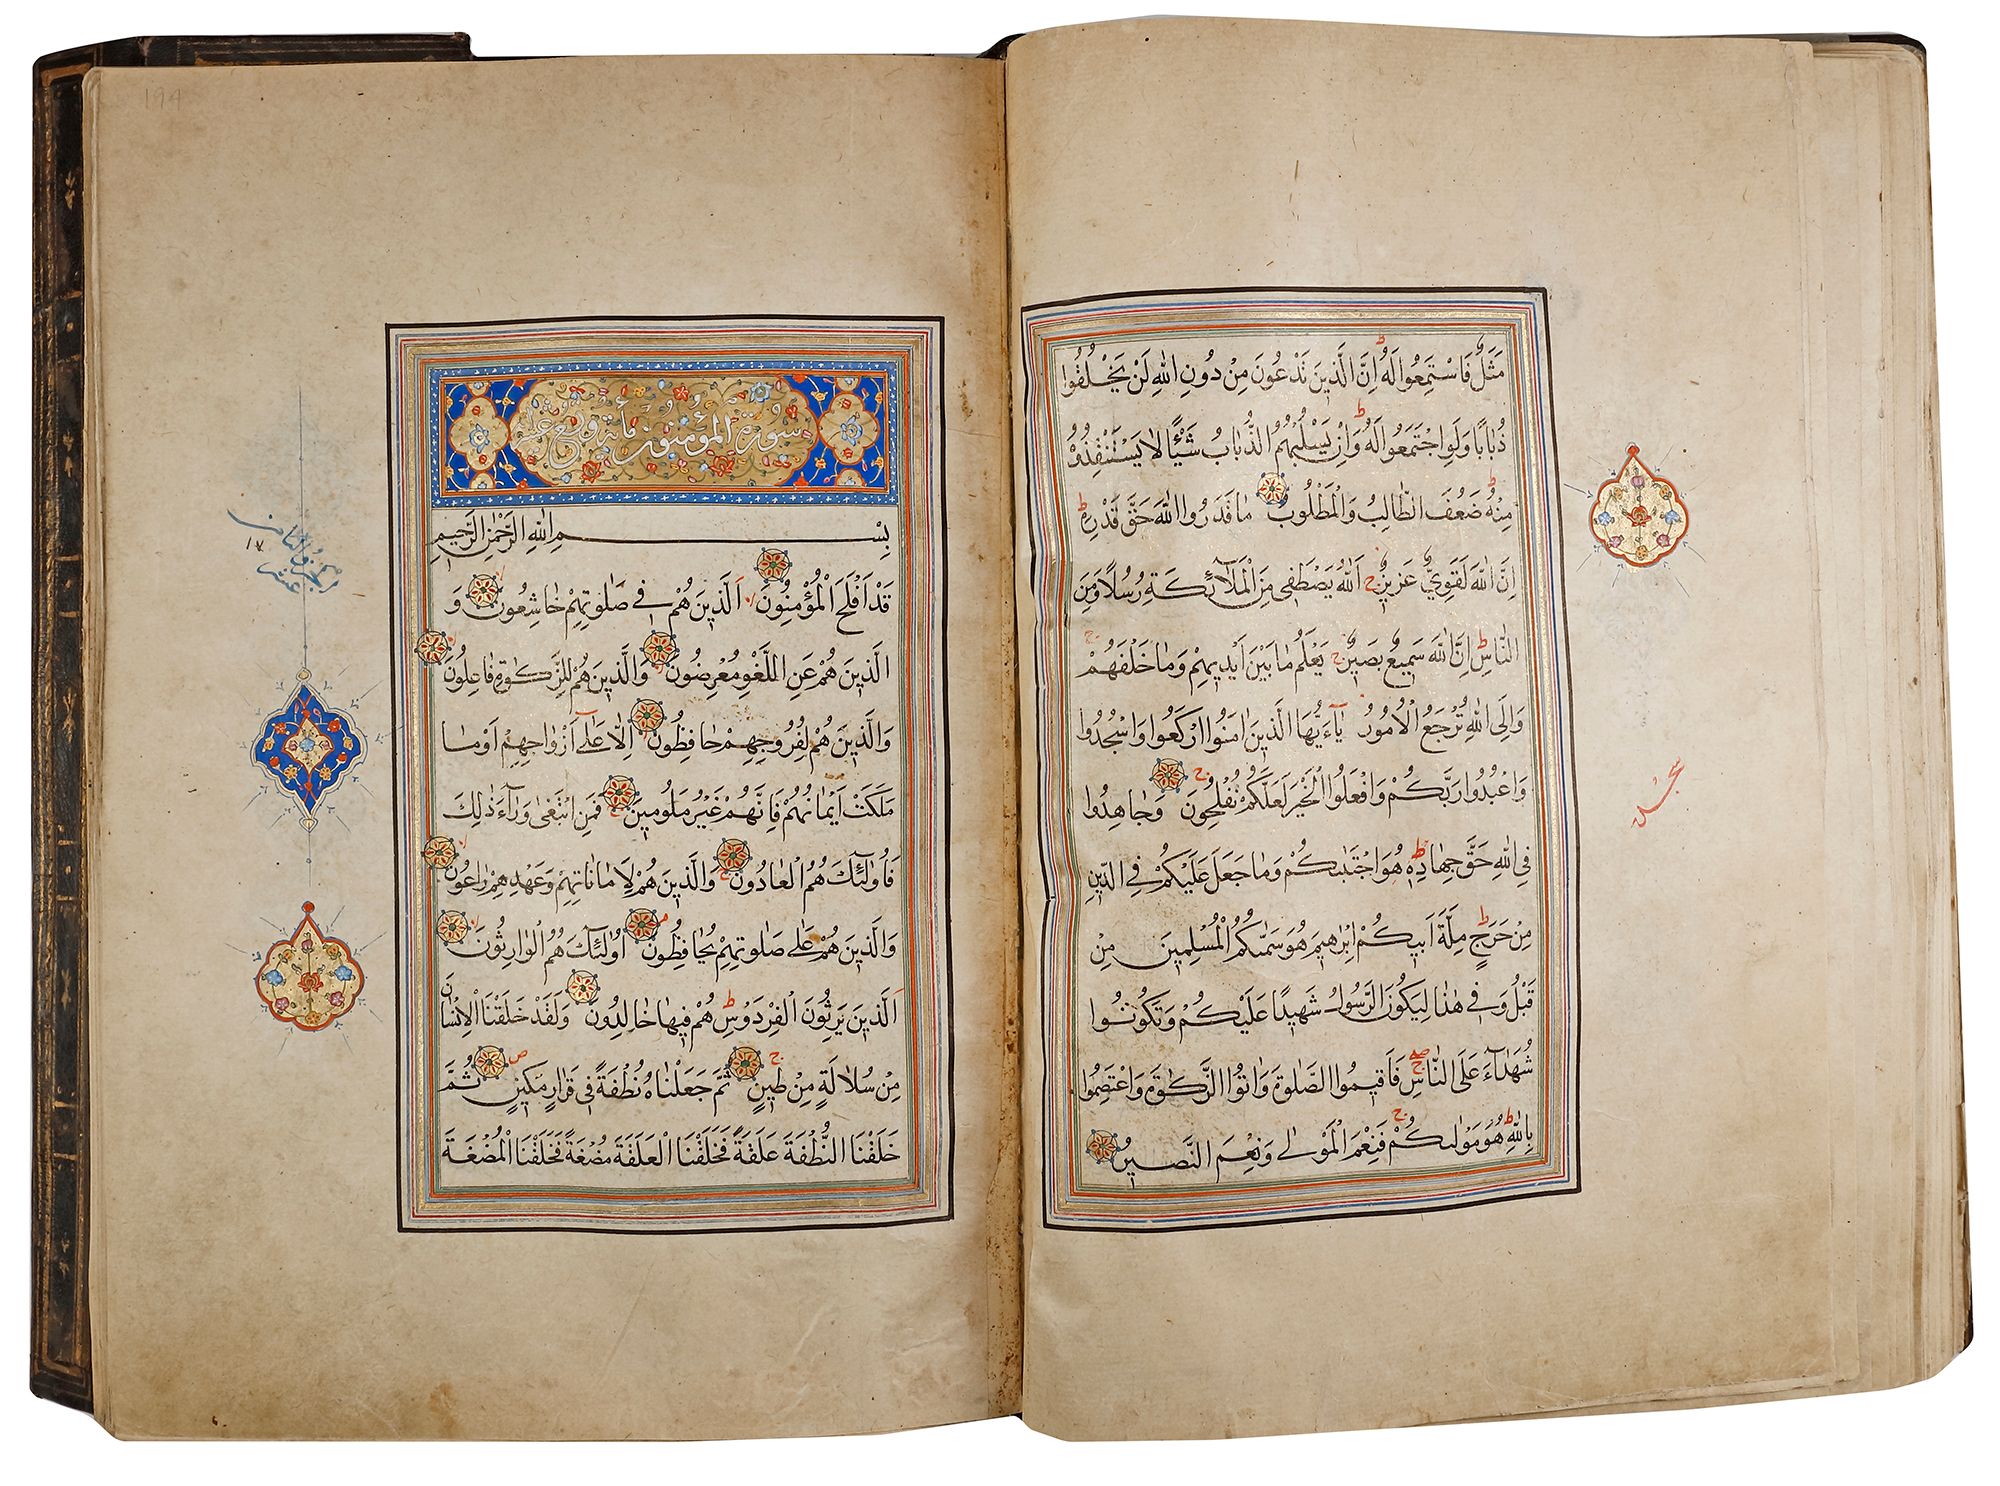 مَثَلٌ فَاسْتَمِعُوا لَهُ اِنَّ الَّذِينَ تَدْعُونَ مِنْ دُونِ اللهِ لَنْ يَخْلُقُوا
ذُبَابًا وَلَوِ اجْتَمَعُوا لَهُ وَاِنْ يَسْلُبْهُمُ الذُّبَابُ شَيْئًا لَا يَسْتَنْقِذُوهُ
مِنْهُ ضَعُفَ الطَّالِبُ وَالْمَطْلُوبُ مَا قَدَرُوا اللهَ حَقَّ قَدْرِهِ
اِنَّ اللهَ لَقَوِيٌّ عَزِيزٌ اَللهُ يَصْطَفِي مِنَ الْمَلَائِكَةِ رُسُلًا وَمِنَ
النَّاسِ اِنَّ اللهَ سَمِيعٌ بَصِيرٌ يَعْلَمُ مَا بَيْنَ اَيْدِيهِمْ وَمَا خَلْفَهُمْ
وَاِلَى اللهِ تُرْجَعُ الْاُمُورُ يَاءَيُّهَا الَّذِينَ اٰمَنُوا ارْكَعُوا وَاسْجُدُوا
وَاعْبُدُوا رَبَّكُمْ وَافْعَلُوا الْخَيْرَ لَعَلَّكُمْ تُفْلِحُونَ وَجَاهِدُوا
فِي اللهِ حَقَّ جِهَادِهِ هُوَ اجْتَبٰىكُمْ وَمَا جَعَلَ عَلَيْكُمْ فِي الدِّينِ
مِنْ حَرَجٍ مِلَّةَ اَبِيكُمْ اِبْرٰهِيمَ هُوَ سَمّٰىكُمُ الْمُسْلِمِينَ مِنْ
قَبْلُ وَفِي هٰذَا لِيَكُونَ الرَّسُولُ شَهِيدًا عَلَيْكُمْ وَتَكُونُوا
شُهَدَاءَ عَلَى النَّاسِ فَاَقِيمُوا الصَّلٰوةَ وَاٰتُوا الزَّكٰوةَ وَاعْتَصِمُوا
بِاللهِ هُوَ مَوْلٰىكُمْ فَنِعْمَ الْمَوْلٰى وَنِعْمَ النَّصِيرُ
سورة المؤمنون مائة وثمان عشر
بِسْمِ اللهِ الرَّحْمٰنِ الرَّحِيمِ
قَدْ اَفْلَحَ الْمُؤْمِنُونَ اَلَّذِينَ هُمْ فِي صَلٰوتِهِمْ خَاشِعُونَ وَ
الَّذِينَ هُمْ عَنِ اللَّغْوِ مُعْرِضُونَ وَالَّذِينَ هُمْ لِلزَّكٰوةِ فَاعِلُونَ
وَالَّذِينَ هُمْ لِفُرُوجِهِمْ حَافِظُونَ اِلَّا عَلٰى اَزْوَاجِهِمْ اَوْ مَا
مَلَكَتْ اَيْمَانُهُمْ فَاِنَّهُمْ غَيْرُ مَلُومِينَ فَمَنِ ابْتَغٰى وَرَاءَ ذٰلِكَ
فَاُولٰئِكَ هُمُ الْعَادُونَ وَالَّذِينَ هُمْ لِاَمَانَاتِهِمْ وَعَهْدِهِمْ رَاعُونَ
وَالَّذِينَ هُمْ عَلٰى صَلٰوتِهِمْ يُحَافِظُونَ اُولٰئِكَ هُمُ الْوَارِثُونَ
اَلَّذِينَ يَرِثُونَ الْفِرْدَوْسَ هُمْ فِيهَا خَالِدُونَ وَلَقَدْ خَلَقْنَا الْاِنْسَانَ
مِنْ سُلَالَةٍ مِنْ طِينٍ ثُمَّ جَعَلْنَاهُ نُطْفَةً فِي قَرَارٍ مَكِينٍ ثُمَّ
خَلَقْنَا النُّطْفَةَ عَلَقَةً فَخَلَقْنَا الْعَلَقَةَ مُضْغَةً فَخَلَقْنَا الْمُضْغَةَ
194
الجزو الثامن
عشر ١٨